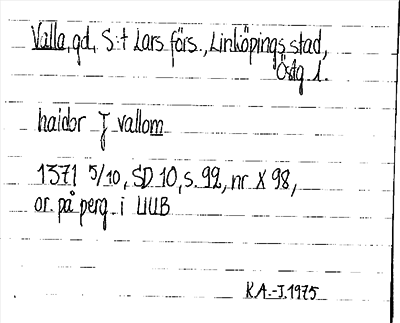 Valla, gd, S:t Lars förs., Linköpings stad,
Östg l.
haidor J vallom
1371 5/10, SD 10, s. 92, nr X 98,
or. på perg. i UUB
K.A.-J. 1975